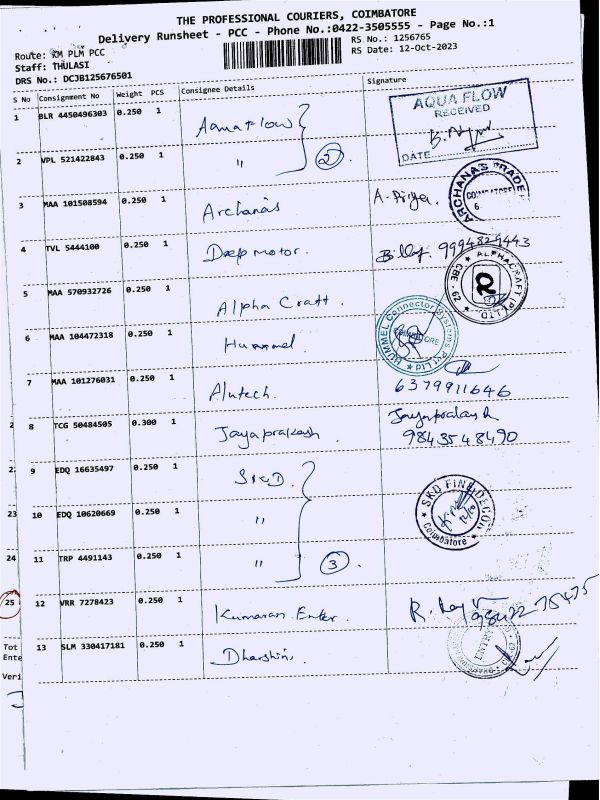 THE PROFESSIONAL COURIERS, COIMBATORE
Delivery Runsheet - PCC - Phone No.:0422-3505555 - Page No.:1
Route: KM PLM PCC
RS No.: 1256765
Staff: THULASI
RS Date: 12-Oct-2023
DRS No.: DCJB125676501
S No Consignment No Weight PCS Consignee Details Signature
1 BLR 4450496303 0.250 1 Aquaflow
AQUA FLOW
RECEIVED
DATE
2 VPL 521422843 0.250 1 " 2
3 MAA 101508594 0.250 1 Archanas A. Priya.
ARCHANAS TRADE
COIMBATORE
6
4 TVL 5444100 0.250 1 Deep motor. 9994829443
5 MAA 570932726 0.250 1 Alpha Craft.
ALPHACRAFT (P) LTD CBE - 29
R
6 MAA 104472318 0.250 1 Hummel
HUMMEL Connector Systems Pvt Ltd
7 MAA 101276031 0.250 1 Alutech. 6379911646
2 8 TCG 50484505 0.300 1 Jayaprakash. Jayaprakash
9843548490
2 9 EDQ 16635497 0.250 1 SKD
SKD FINE DECOR
Coimbatore
23 10 EDQ 10620669 0.250 1 "
24 11 TRP 4491143 0.250 1 " 3
25 12 VRR 7278423 0.250 1 Kumaran Enter.
Tot 13 SLM 330417181 0.250 1 Dharshini
Ente
Veri